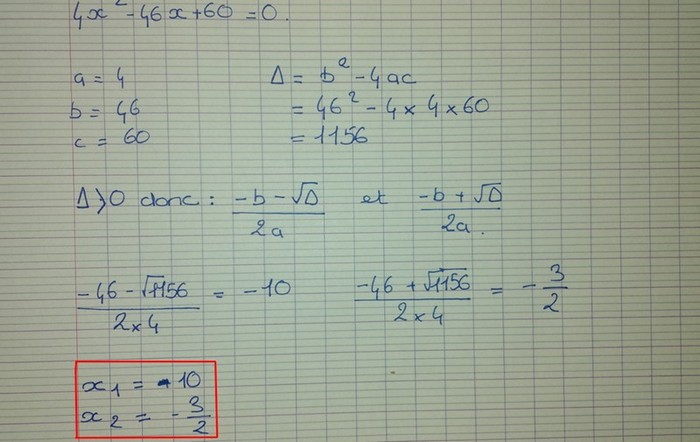 4x² - 46x + 60 = 0.
a = 4
Δ = b² - 4ac
b = 46
= 46² - 4 × 4 × 60
c = 60
= 1156
Δ > 0 donc : (-b - √Δ)/2a et (-b + √Δ)/2a.
(-46 - √1156)/(2 × 4) = -10
(-46 + √1156)/(2 × 4) = -3/2
x₁ = -10
x₂ = -3/2